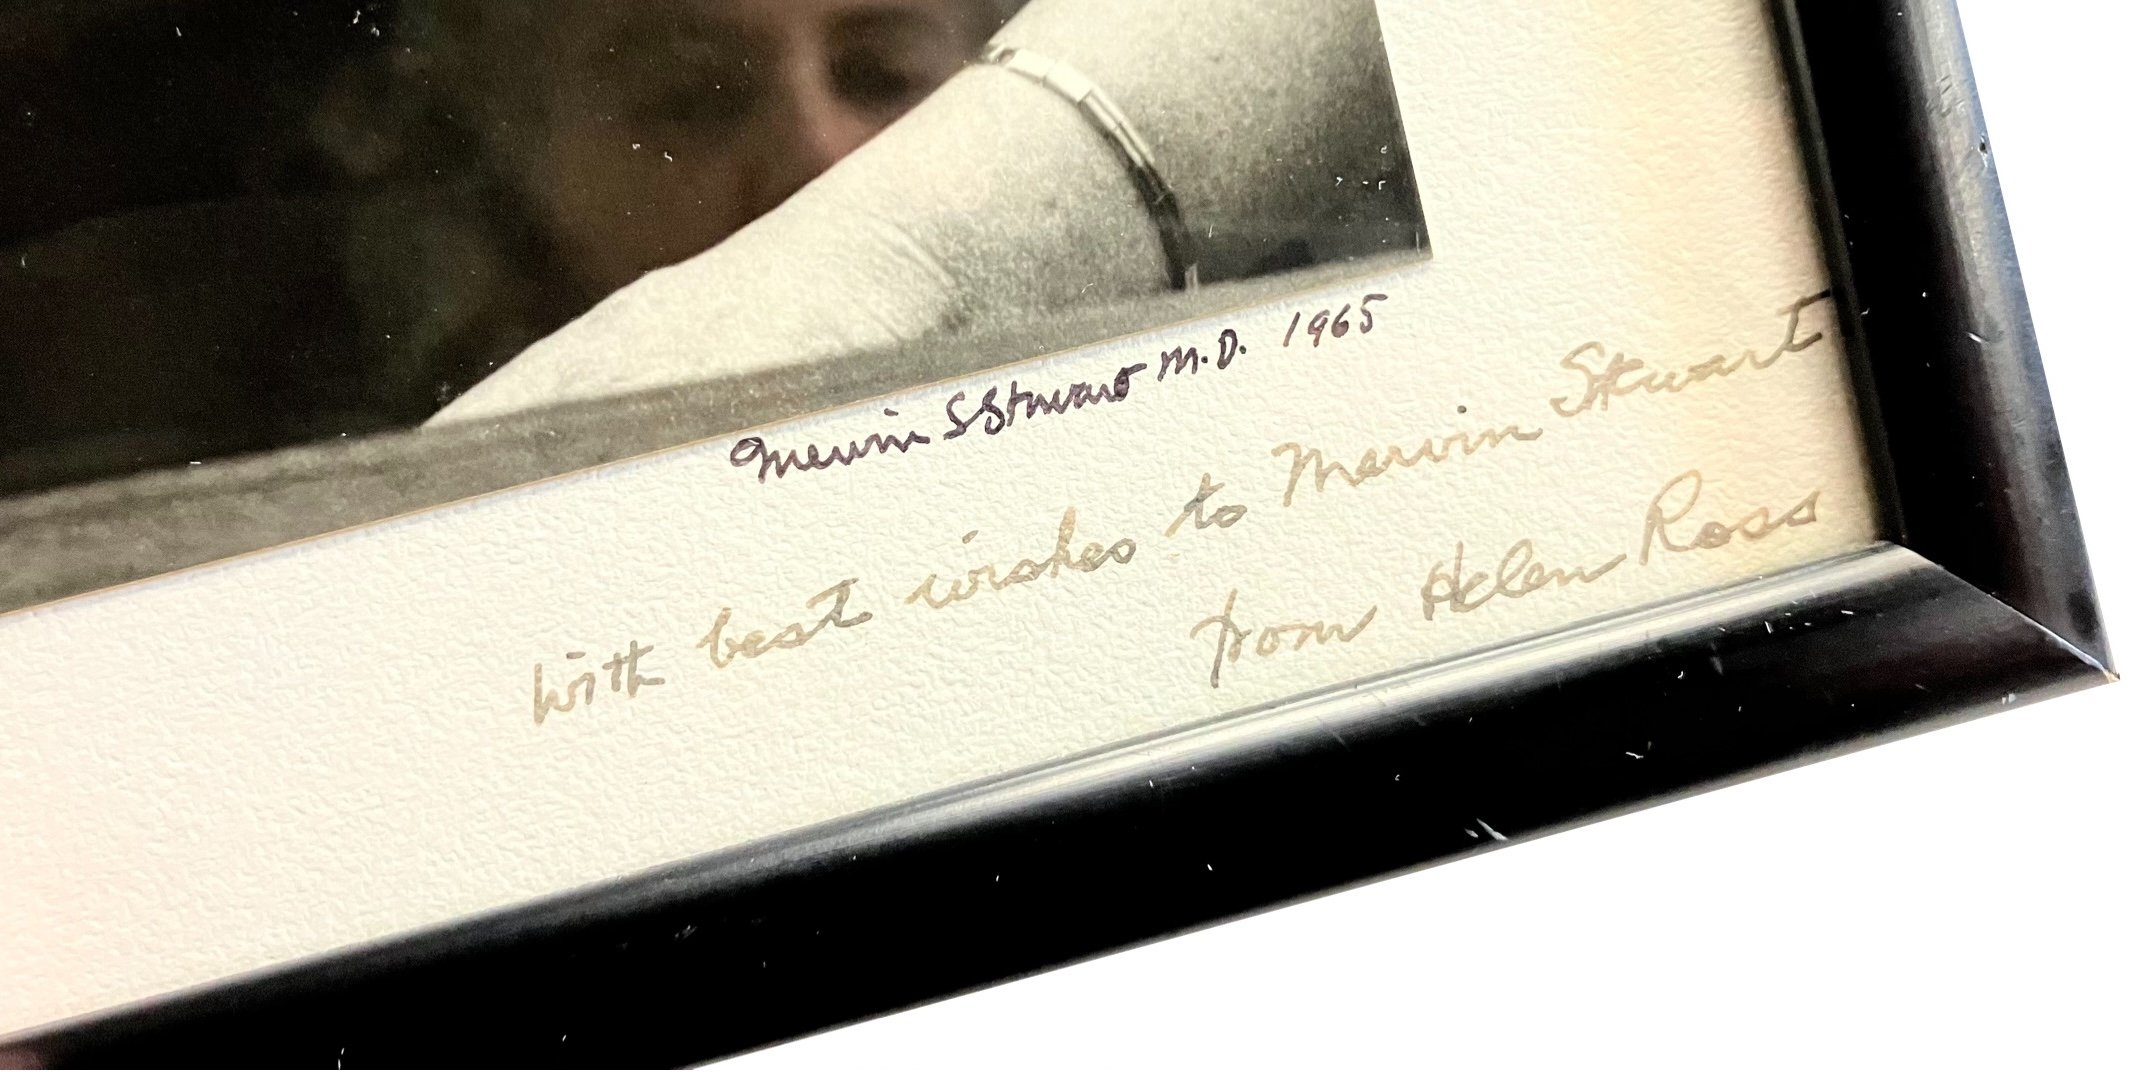 Marvin S Stewart M.D. 1965
With best wishes to Marvin Stewart
from Helen Ross